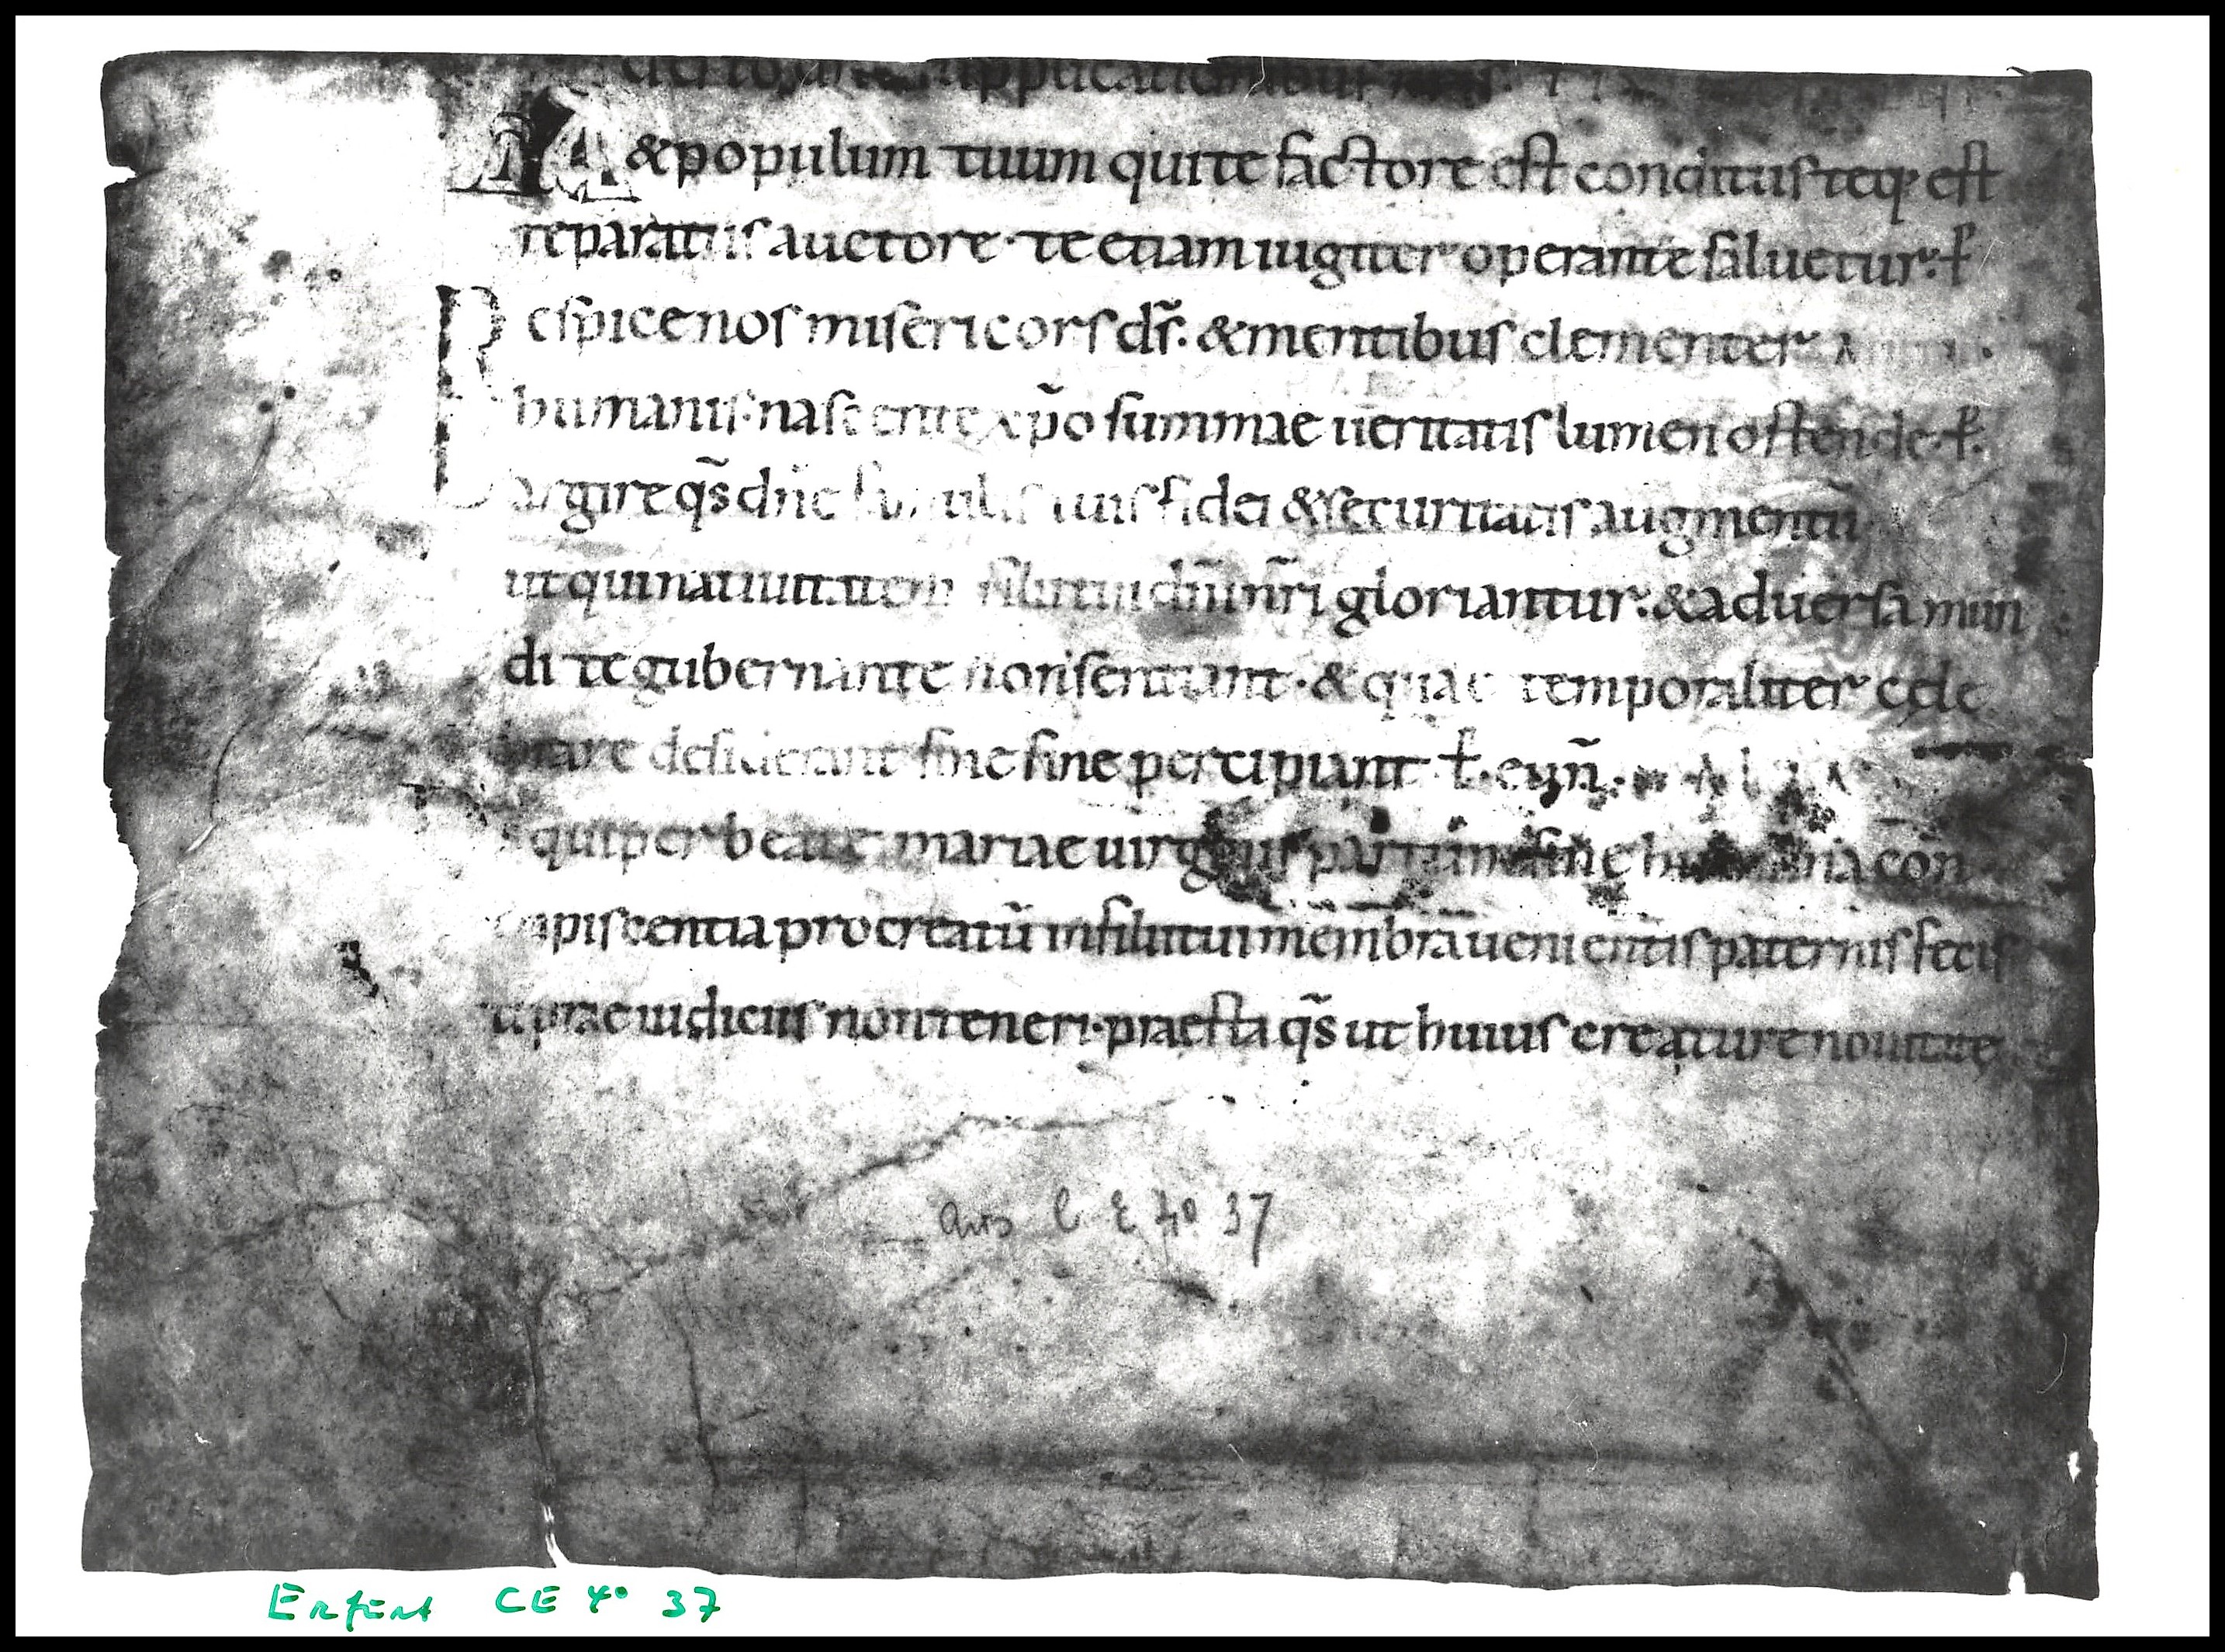 supplicationibus
&populum tuum qui te factore est conditus teq; est
reparatus auctore· te etiam iugiter operante saluetur·
Respice nos misericors ds̃· &mentibus clementer
humanis· nascente xp̃o summae ueritatis lumen ostende·
Largire qs̃ dñe tuis fidei & securitatis augmentũ
ut qui natiuitatem filii tui dñi nr̃i gloriantur· & aduersa mun
di te gubernante non sentiant· & quae temporaliter cele
brare desiderant sine fine percipiant
qui per beatae mariae uirginis partum sine humana con
cupiscentia procreatũ in filii tui membra uenientis paternis fecis
ti praeiudiciis non teneri· praesta qs̃ ut huius creature nouitate
aus C E 4º 37
Erfurt CE 4° 37